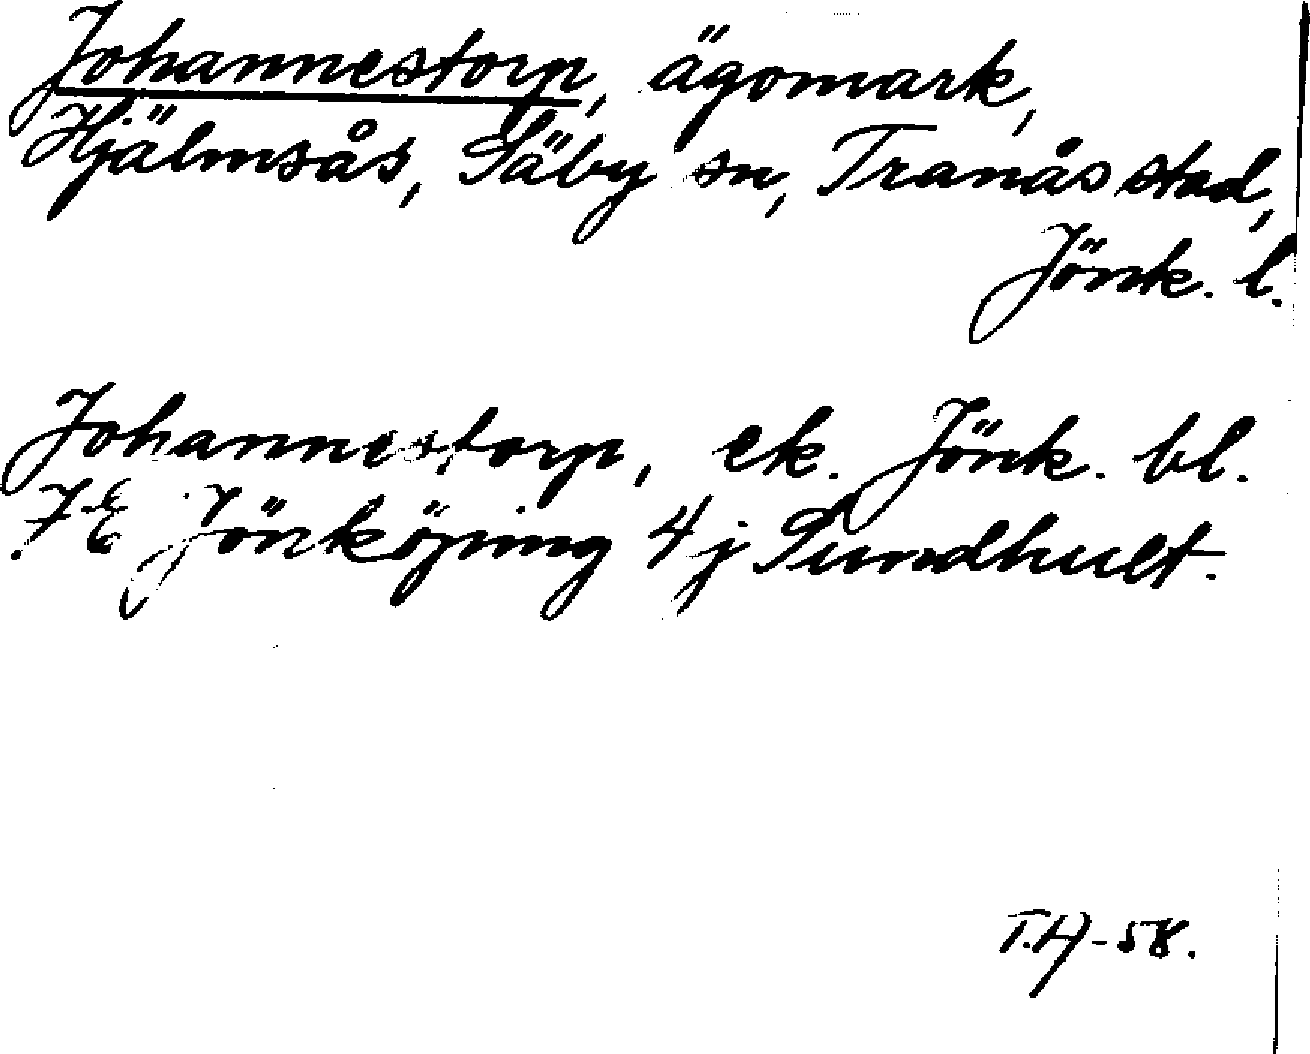 Johannestorp, ägomark,
Hjälmsås, Säby sn, Tranås stad,
Jönk. l.
Johannestorp, ek. Jönk. bl.
7E Jönköping 4j Sundhult.
T.H-58.